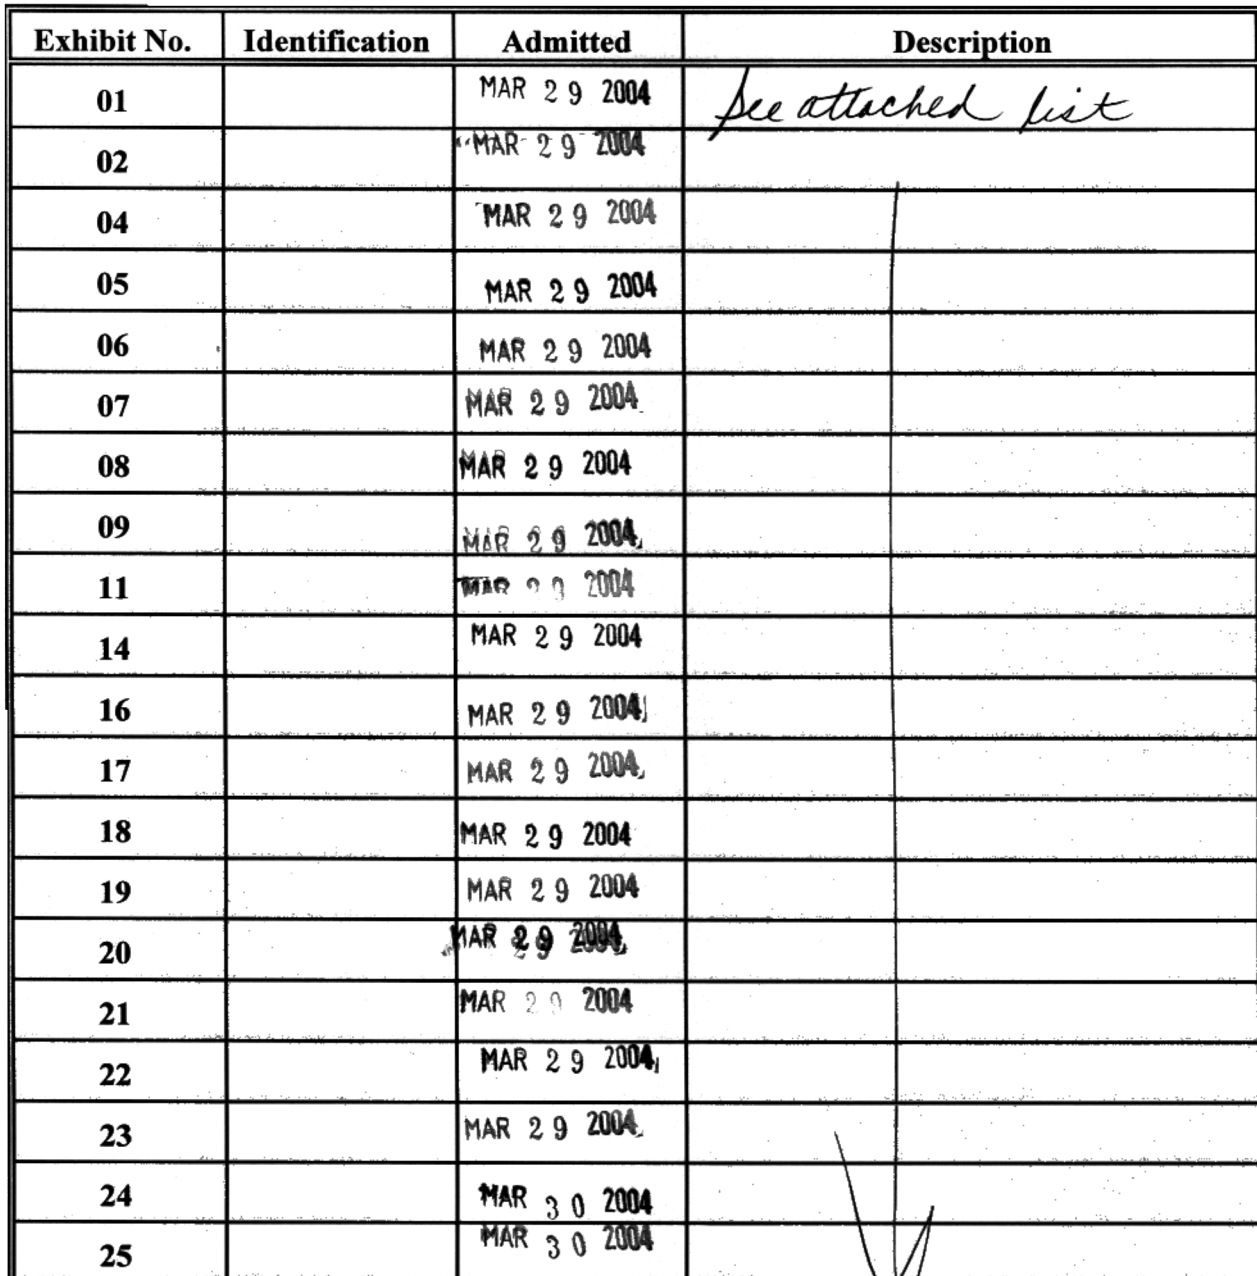 Exhibit No. Identification Admitted Description
01 MAR 29 2004 See attached list
02 MAR 29 2004
04 MAR 29 2004
05 MAR 29 2004
06 MAR 29 2004
07 MAR 29 2004
08 MAR 29 2004
09 MAR 29 2004
11 MAR 29 2004
14 MAR 29 2004
16 MAR 29 2004
17 MAR 29 2004
18 MAR 29 2004
19 MAR 29 2004
20 MAR 29 2004
21 MAR 29 2004
22 MAR 29 2004
23 MAR 29 2004
24 MAR 30 2004
25 MAR 30 2004